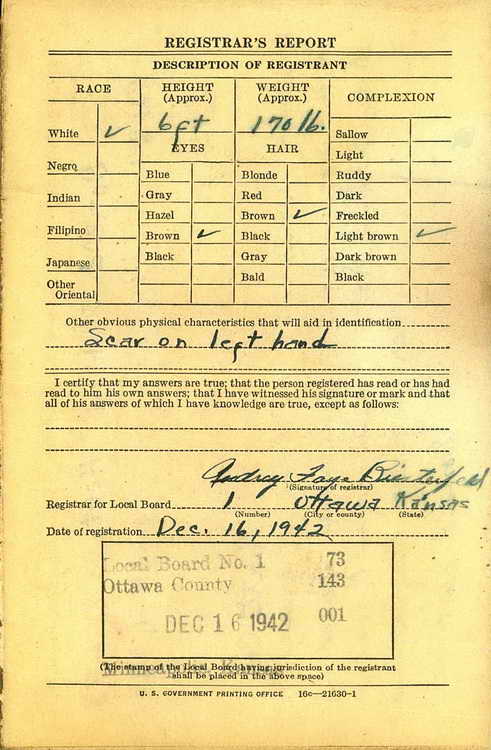 REGISTRAR'S REPORT
DESCRIPTION OF REGISTRANT
RACE
HEIGHT (Approx.)
WEIGHT (Approx.)
COMPLEXION
White ✓
6ft
170 lb.
Sallow
EYES
HAIR
Light
Negro
Blue
Blonde
Ruddy
Indian
Gray
Red
Dark
Hazel
Brown ✓
Freckled
Filipino
Brown ✓
Black
Light brown ✓
Japanese
Black
Gray
Dark brown
Other Oriental
Bald
Black
Other obvious physical characteristics that will aid in identification
Scar on left hand
I certify that my answers are true; that the person registered has read or has had
read to him his own answers; that I have witnessed his signature or mark and that
all of his answers of which I have knowledge are true, except as follows:
Audrey Faye
(Signature of registrar)
Registrar for Local Board 1 Ottawa Kansas
(Number) (City or county) (State)
Date of registration Dec. 16, 1942
Local Board No. 1 73
Ottawa County 143
001
DEC 16 1942
Minneapolis, Kansas
(The stamp of the Local Board having jurisdiction of the registrant
shall be placed in the above space)
U. S. GOVERNMENT PRINTING OFFICE 16c—21630-1